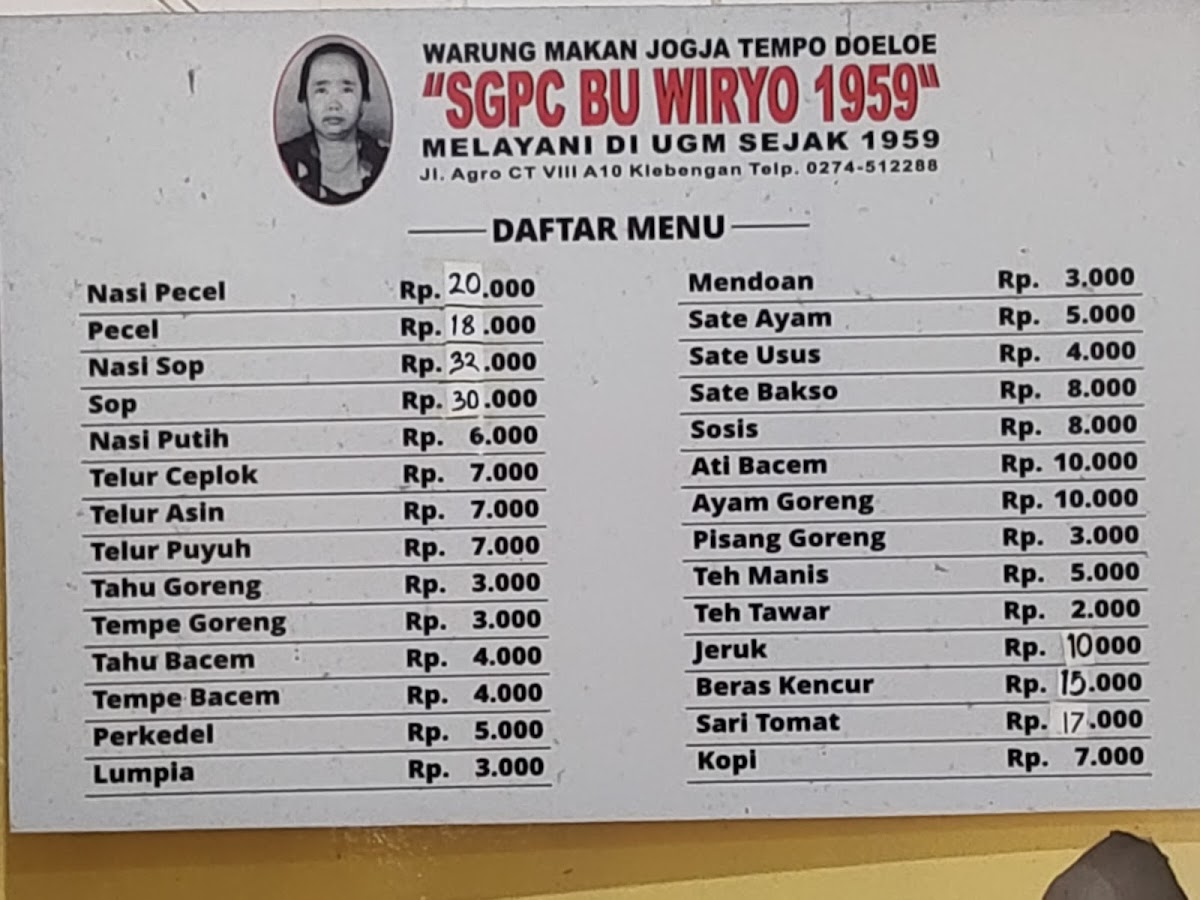 WARUNG MAKAN JOGJA TEMPO DOELOE
"SGPC BU WIRYO 1959"
MELAYANI DI UGM SEJAK 1959
Jl. Agro CT VIII A10 Klebengan Telp. 0274-512288
DAFTAR MENU
Nasi Pecel Rp. 20.000
Pecel Rp. 18.000
Nasi Sop Rp. 32.000
Sop Rp. 30.000
Nasi Putih Rp. 6.000
Telur Ceplok Rp. 7.000
Telur Asin Rp. 7.000
Telur Puyuh Rp. 7.000
Tahu Goreng Rp. 3.000
Tempe Goreng Rp. 3.000
Tahu Bacem Rp. 4.000
Tempe Bacem Rp. 4.000
Perkedel Rp. 5.000
Lumpia Rp. 3.000
Mendoan Rp. 3.000
Sate Ayam Rp. 5.000
Sate Usus Rp. 4.000
Sate Bakso Rp. 8.000
Sosis Rp. 8.000
Ati Bacem Rp. 10.000
Ayam Goreng Rp. 10.000
Pisang Goreng Rp. 3.000
Teh Manis Rp. 5.000
Teh Tawar Rp. 2.000
Jeruk Rp. 10000
Beras Kencur Rp. 15.000
Sari Tomat Rp. 17.000
Kopi Rp. 7.000